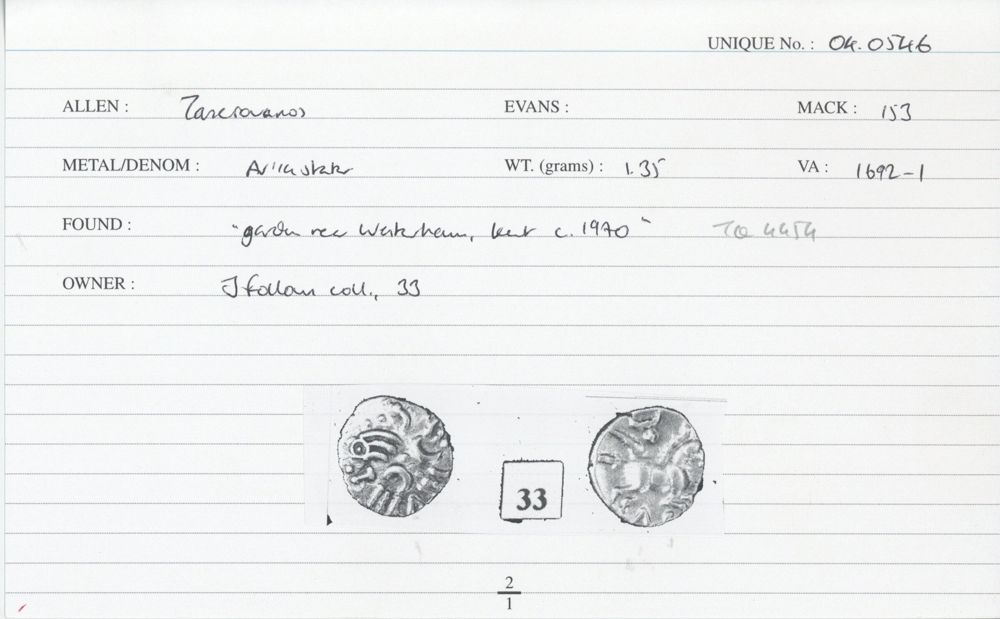 UNIQUE No. : 04.0546
ALLEN : Tasciovanos EVANS : MACK : 153
METAL/DENOM : AV 1/4 stater WT. (grams) : 1.35 VA : 1692-1
FOUND : "garden near Westerham, Kent c. 1970" TQ 4454
OWNER : J Follows coll., 33
33
2
1